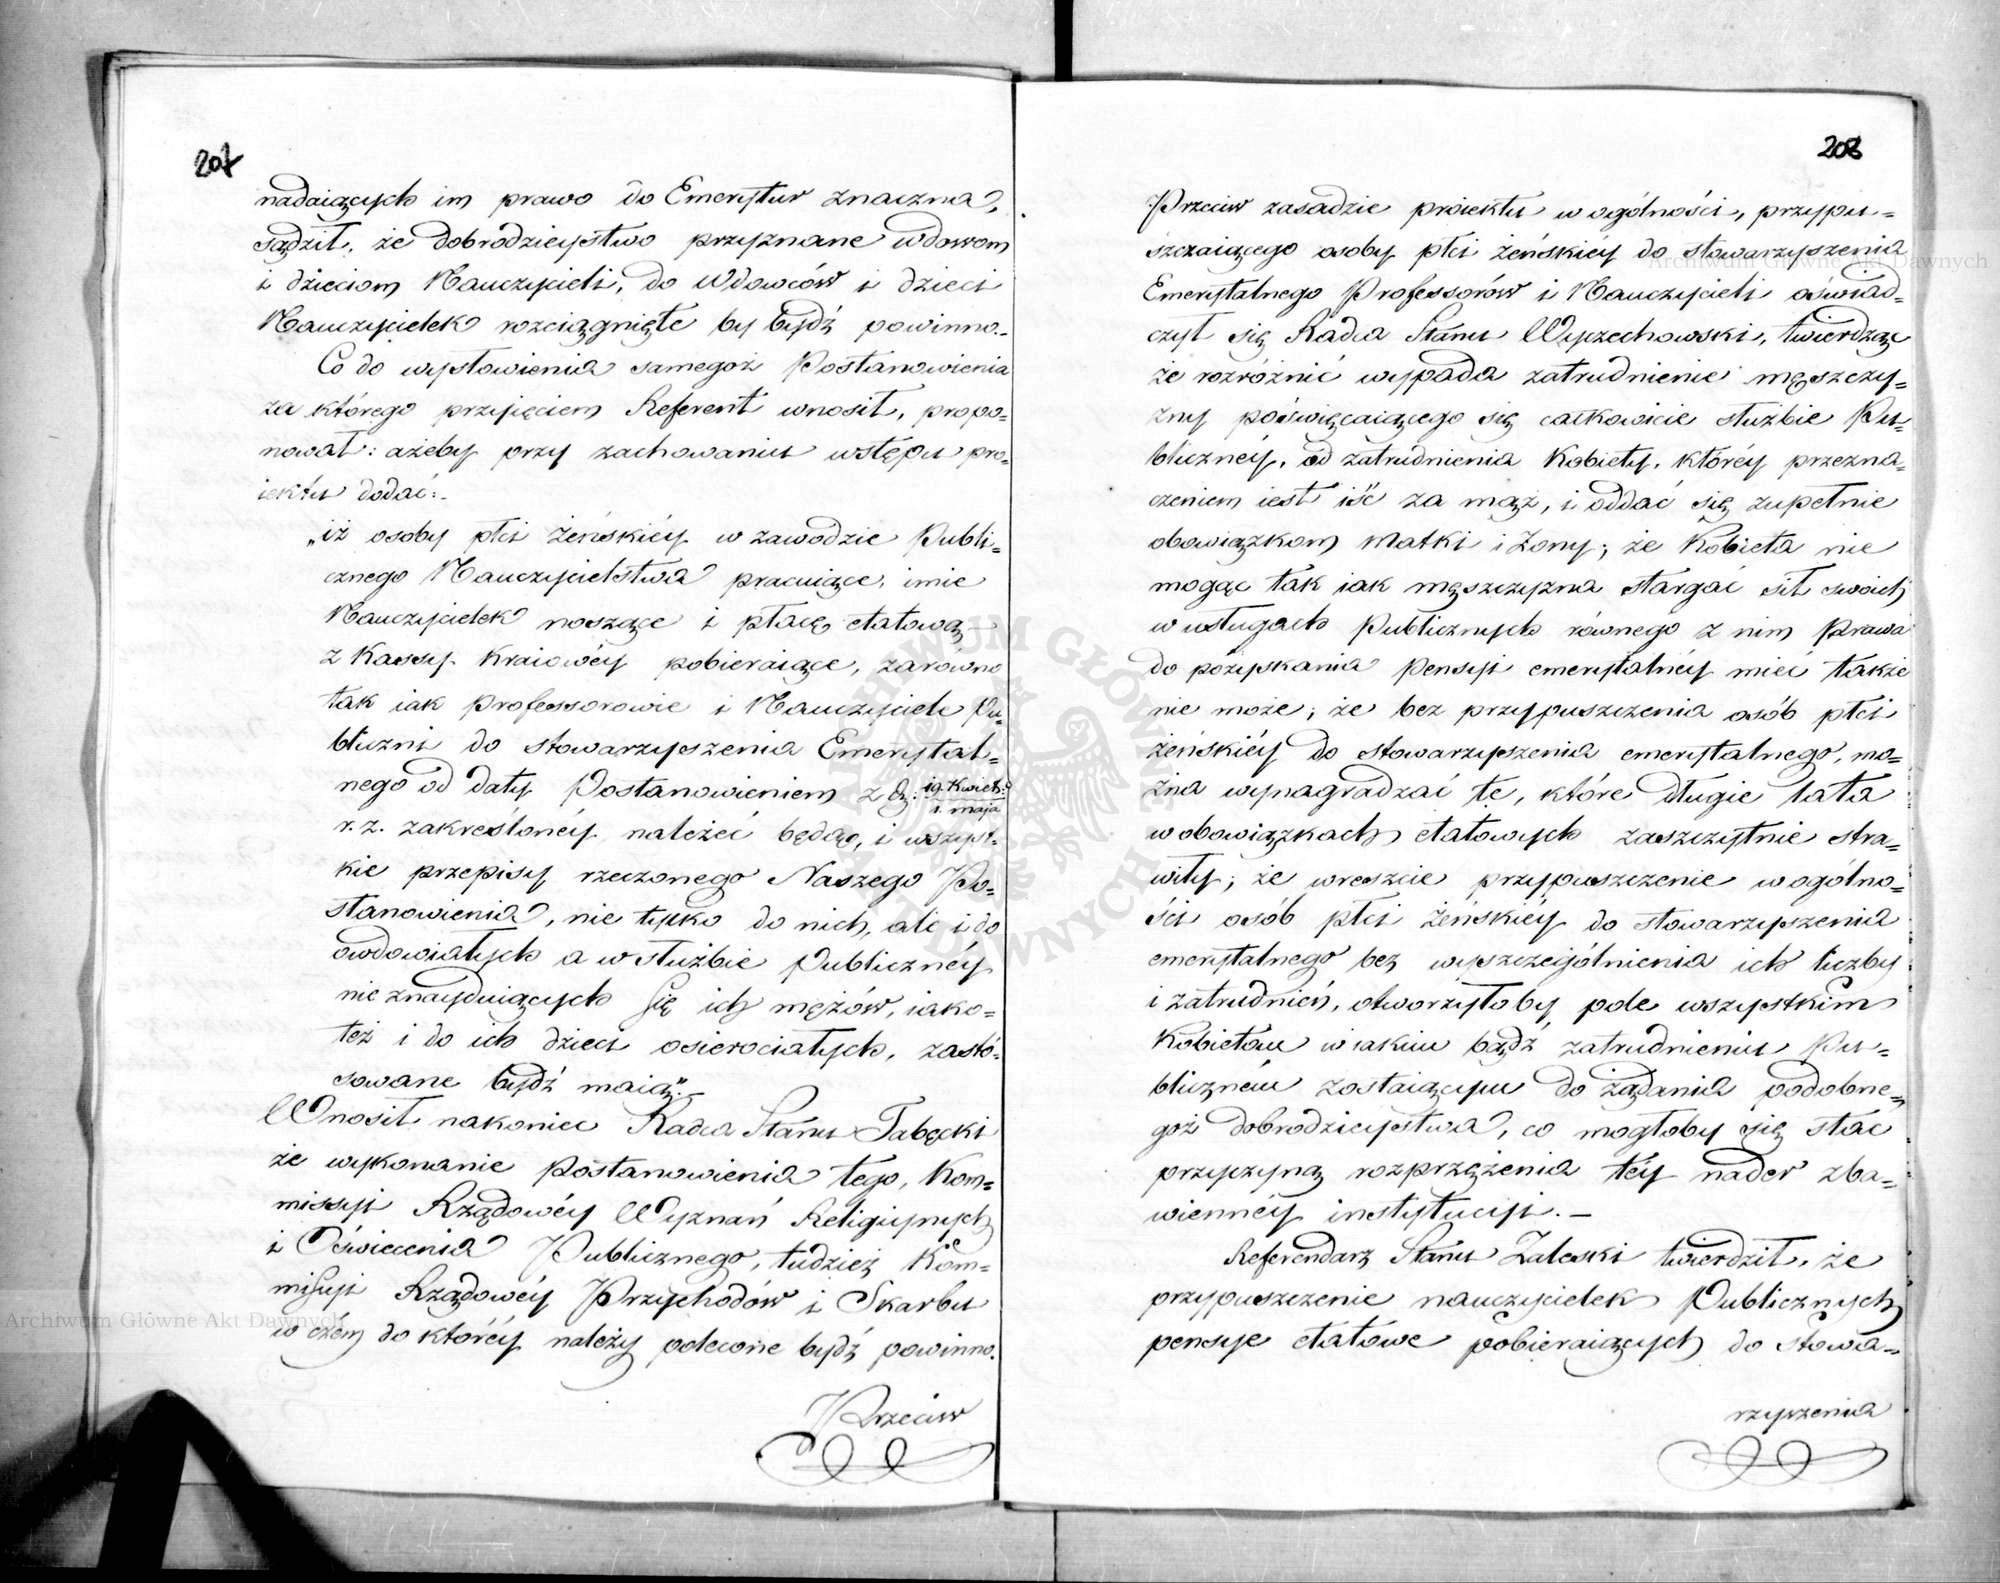 207
nadaiących im prawo do Emerytur znaczna,
sądził, że dobrodzieystwo przyznane wdowom
i dzieciom Nauczycieli, do Wdowców i dzieci
Nauczycielek rozciągnięte by bydź powinno.
Co do wysłowienia samegoż Postanowienia
za którego przyięciem Referent wnosił, propo=
nował: ażeby przy zachowaniu wstępu pro=
iektu dodać:
„iż osoby płci żeńskiéy w zawodzie Publi=
cznego Nauczycielstwa pracuiące, imie
Nauczycielek noszące i płacę etatową
z Kassy Kraiowéy pobieraiące, zarówno
tak iak Professorowie i Nauczyciele Pu=
bliczni do stowarzyszenia Emerytal=
nego od daty Postanowieniem z d: 19. Kwiet: / 1. maja
r. z. zakresloney należeć będą, i wszyst=
kie przepisy rzeczonego Naszego Po=
stanowienia, nie tylko do nich, ale i do
owdowiałych a w służbie Publicznéy
nie znayduiących się ich mężów, iako=
też i do ich dzieci osierociałych, zastó=
sowane bydź maią."
Wnosił nakoniec Radca Stanu Tabęcki
że wykonanie Postanowienia tego, Kom=
missyi Rządowéy Wyznań Religiynych
i Oświecenia Publicznego, tudzież Kom=
missyi Rządowéy Przychodów i Skarbu
w czém do któréy należy polecone bydź powinno.
Przeciw
208
Przeciw zasadzie proiektu w ogólności, przypu=
szczaiącego osoby płci żeńskiey do stowarzyszenia
Emerytalnego Professorów i Nauczycieli oświad=
czył się Radca Stanu Wyczechowski, twierdząc
że rozróżnić wypada zatrudnienie męszczy=
zny poświęcaiącego się całkowicie służbie Pu=
blicznéy, od zatrudnienia Kobiety, któréy przezna=
czeniem iest iść za mąż, i oddać się zupełnie
obowiązkom Matki i Żony; że Kobieta nie
mogąc tak iak męszczyzna stargać sił swoich
w usługach Publicznych równego z nim Prawa
do pozyskania Pensyi emerytalnéy mieć także
nie może; że bez przypuszczenia osób płci
żeńskiéy do stowarzyszenia emerytalnego, mo=
żna wynagradzać te, które długie lata
w obowiązkach etatowych zaszczytnie stra=
wiły; że wreszcie przypuszczenie w ogólno=
ści osób płci żeńskiéy do stowarzyszenia
emerytalnego bez wyszczególnienia ich liczby
i zatrudnień, otworzyłoby pole wszystkim
Kobietom w iakim bądź zatrudnieniu Pu=
bliczném zostaiącym do żądania podobne=
goż dobrodzieystwa, co mogłoby się stać
przyczyną rozprzężenia téy nader zba=
wiennéy instytucyi. —
Referendarz Stanu Zaleski twierdził, że
przypuszczenie nauczycielek Publicznych
pensye etatowe pobieraiących do stowa=
rzyszenia
Archiwum Główne Akt Dawnych
Archiwum Główne Akt Dawnych
ARCHIWUM GŁÓWNE AKT DAWNYCH